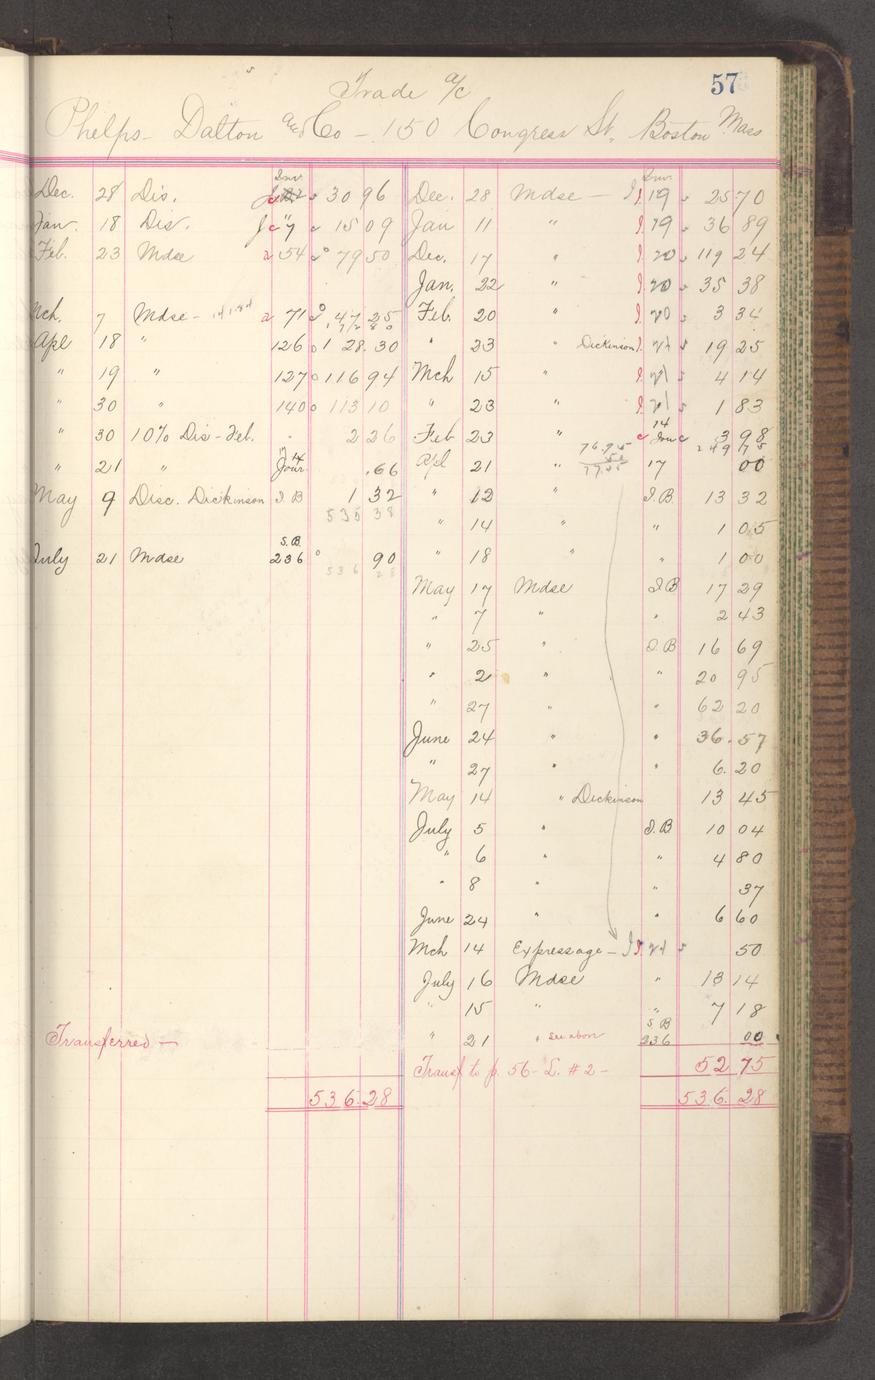 57
Trade a/c
Phelps- Dalton and Co - 150 Congress St. Boston Mass
Inv.
Dec. 28 Dis. 30 96
Jan. 18 Dis. Jc "7 15 09
Feb. 23 Mdse 54 79 50
Mch. 7 Mdse - 71 47 25
Apl 18 " 126 1 28.30
" 19 " 127 116 94
" 30 " 140 113 10
" 30 10% Dis - Feb. 2 26
" 21 " Jour 14 .66
May 9 Disc. Dickinson I.B 1 32
535 38
S.B.
July 21 Mdse 236 90
536 28
Transferred -
536.28
Inv.
Dec. 28 Mdse - I 19 25 70
Jan 11 " I 19 36 89
Dec. 17 " I 20 119 24
Jan. 22 " I 20 35 38
Feb. 20 " I 20 3 34
" 23 " Dickinson I 21 19 25
Mch 15 " I 21 4 14
" 23 " I 21 1 83
14
Feb 23 " c Jour 3 98
249 75
76.75
.50
77.25
Apl 21 " 17 00
" 12 " I.B. 13 32
" 14 " " 1 05
" 18 " " 1 00
May 17 Mdse I B 17 29
" 7 " " 2 43
" 25 " I B 16 69
" 2 " " 20 95
" 27 " " 62 20
June 24 " " 36.57
" 27 " " 6.20
May 14 " Dickinson 13 45
July 5 " I.B 10 04
" 6 " " 4 80
" 8 " " 37
June 24 " " 6 60
Mch 14 Expressage - I 21 50
July 16 Mdse " 13 14
" 15 " " 7 18
S B
" 21 " see above 236 00
Transf to p. 56 - L. #2 - 52 75
536. 28